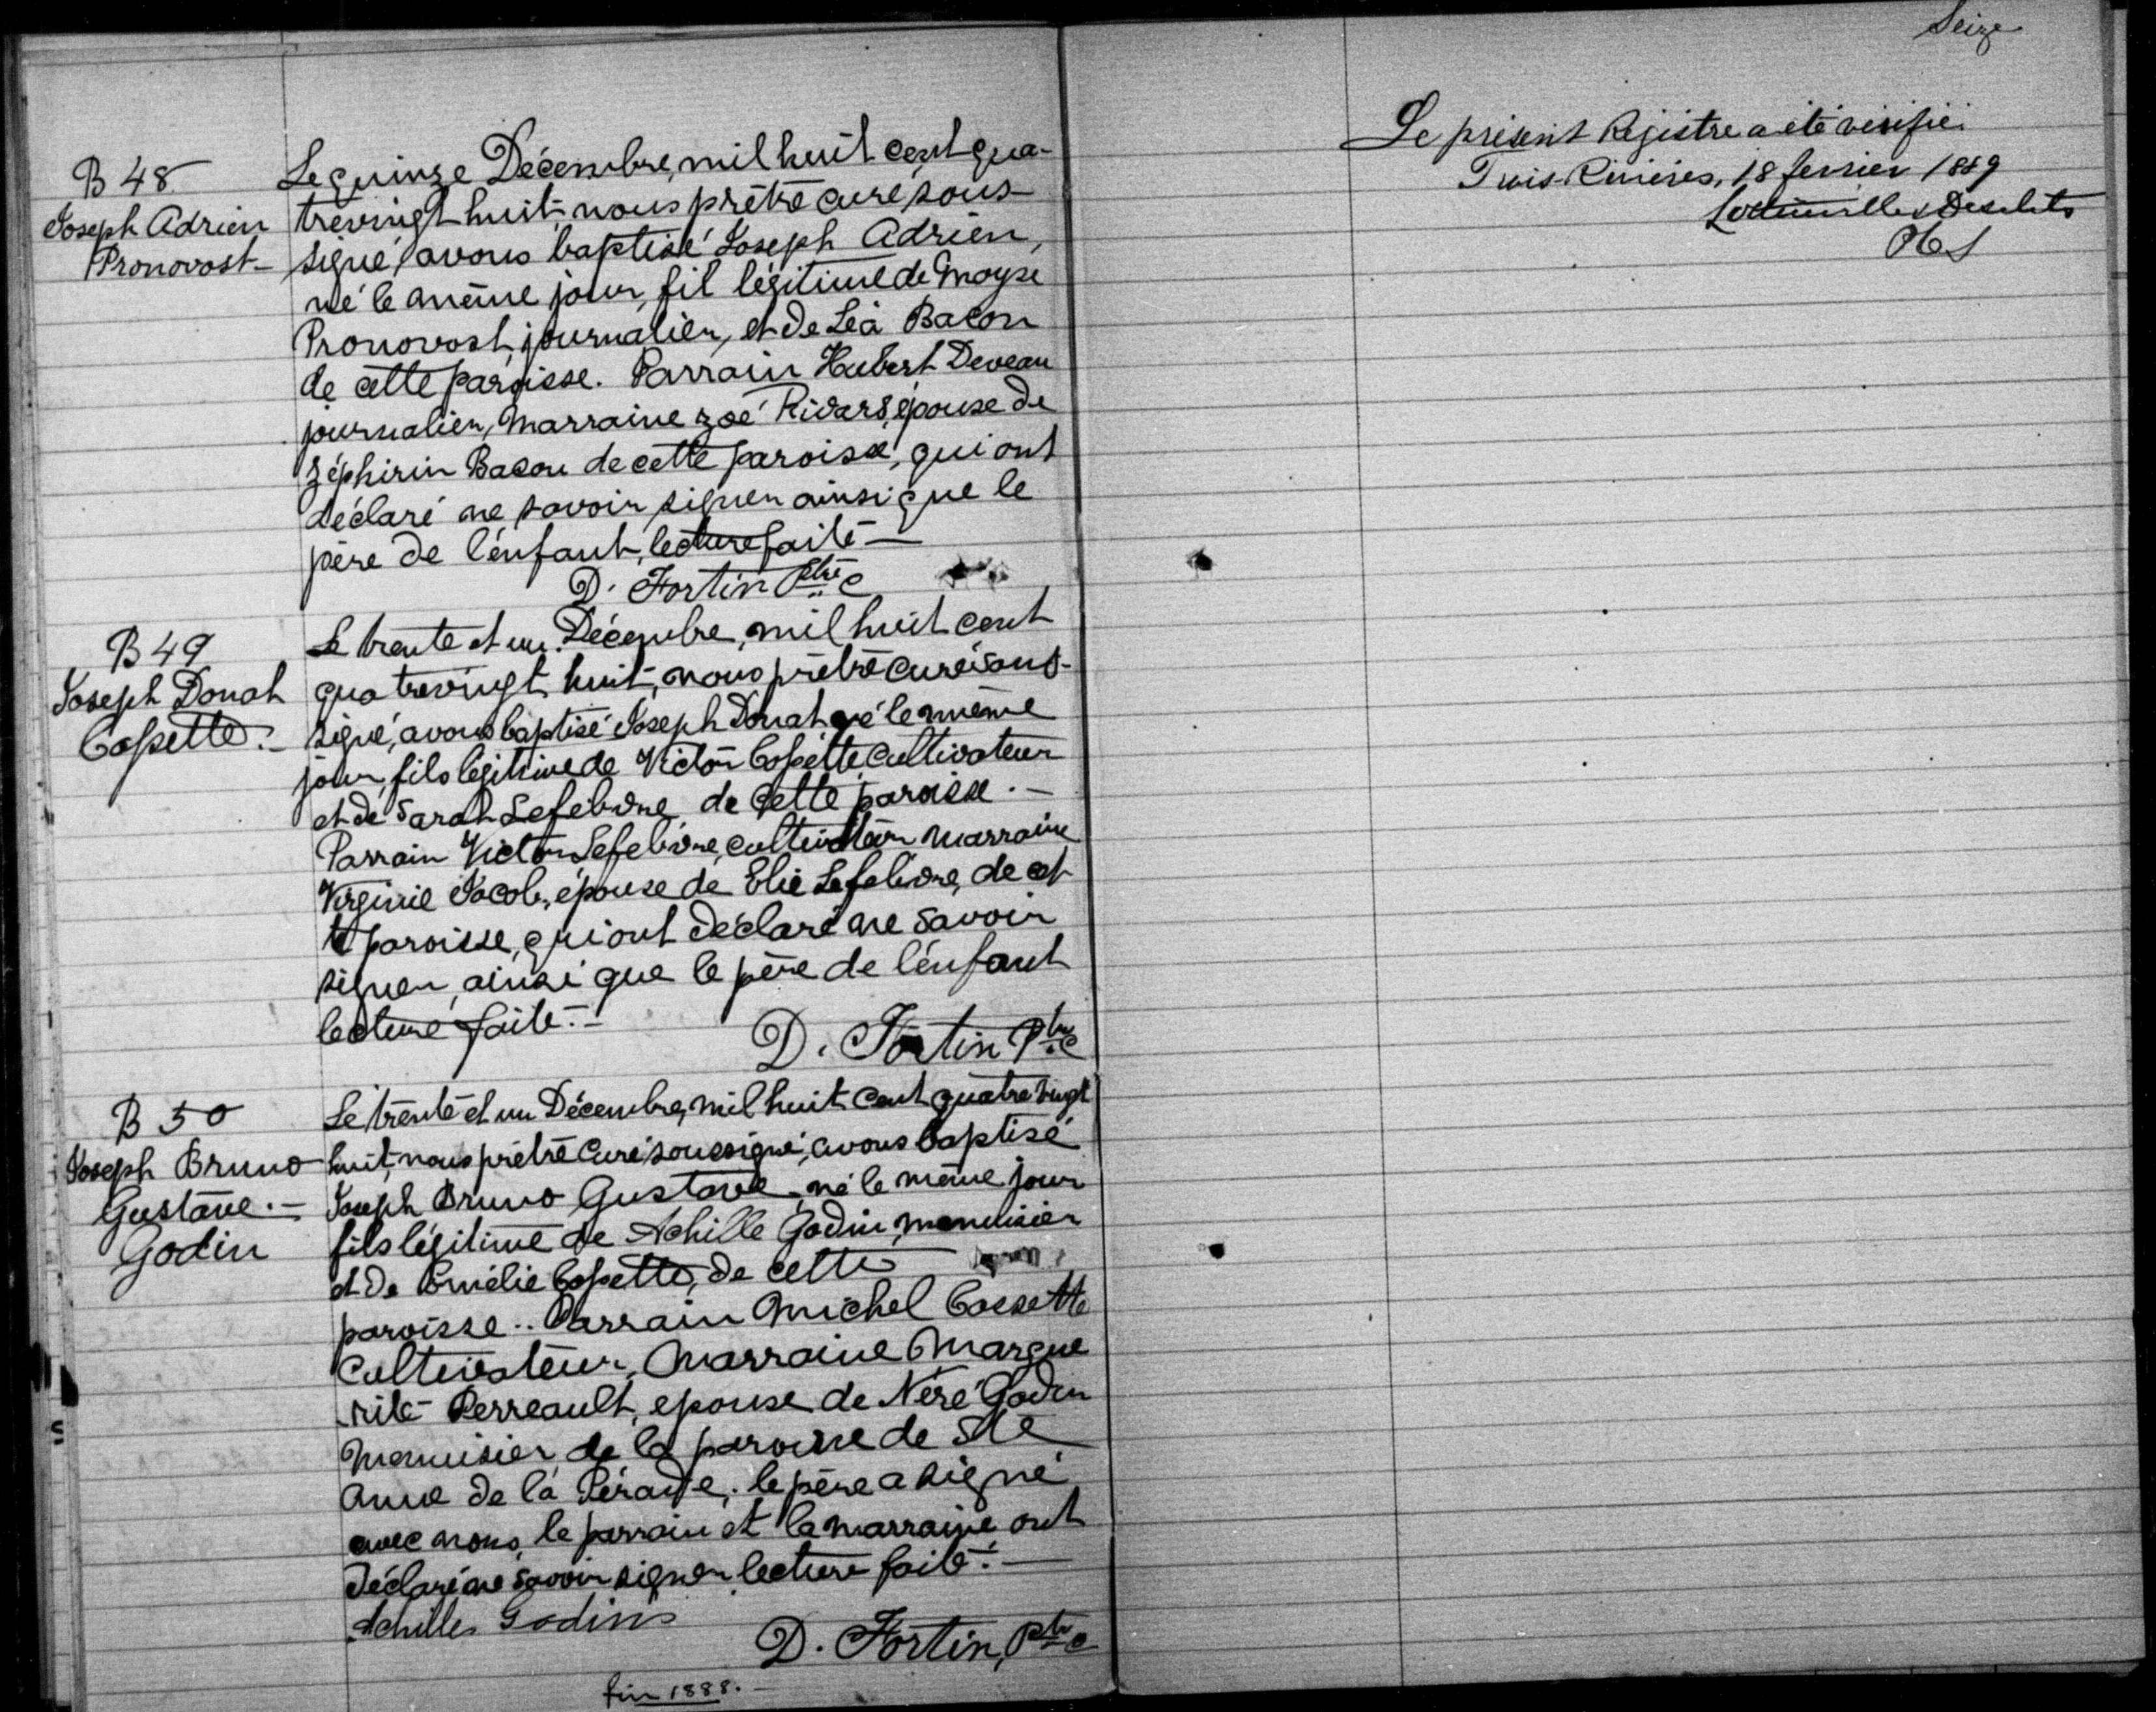 B 48
Joseph Adrien
Pronovost -
Le quinze Décembre, mil huit cent qua-
trevingt huit, nous prêtre curé sous-
signé, avons baptisé Joseph Adrien,
né le même jour, fil légitime de Moyse
Pronovost, journalier, et de Léa Bacon
de cette paroisse. Parrain Hubert Deveau
journalier, Marraine Zoé Rivard, épouse de
Zéphirin Bacon de cette paroisse, qui ont
déclaré ne savoir signer ainsi que le
père de l'enfant, lecture faite —
D. Fortin Ptre C
B 49
Joseph Donat
Cossette. -
Le trente et un Décembre, mil huit cent
quatrevingt huit, nous prêtre curé sous-
signé, avons baptisé Joseph Donat, né le même
jour, fils légitime de Victor Cossette, cultivateur
et de Sarah Lefebvre, de cette paroisse. -
Parrain Victor Lefebvre, cultivateur Marraine
Virginie Jacob, épouse de Elie Lefebvre, de cet
te paroisse, qui ont déclaré ne savoir
signer, ainsi que le père de l'enfant
lecture faite. -
D. Fortin Ptre C
B 50
Joseph Bruno
Gustave. -
Godin
Le trente et un Décembre, mil huit cent quatre vingt
huit, nous prêtre curé soussigné, avons baptisé
Joseph Bruno Gustave, né le même jour
fils légitime de Achille Godin, menuisier
et de Emélie Cossette, de cette
paroisse.. Parrain Michel Cossette
Cultivateur, Marraine Margue
-rite Perreault, épouse de Néré Godin
Menuisier, de la paroisse de Ste
Anne de la Pérade, le père a signé
avec nous, le parrain et la marraine ont
déclaré ne savoir signer, lecture faite. —
Achille Godin
D. Fortin, Ptre C
fin 1888. -
Seize
Le présent Régistre a été vérifié.
Trois-Rivières, 18 fevrier 1889
Desilets
PCS